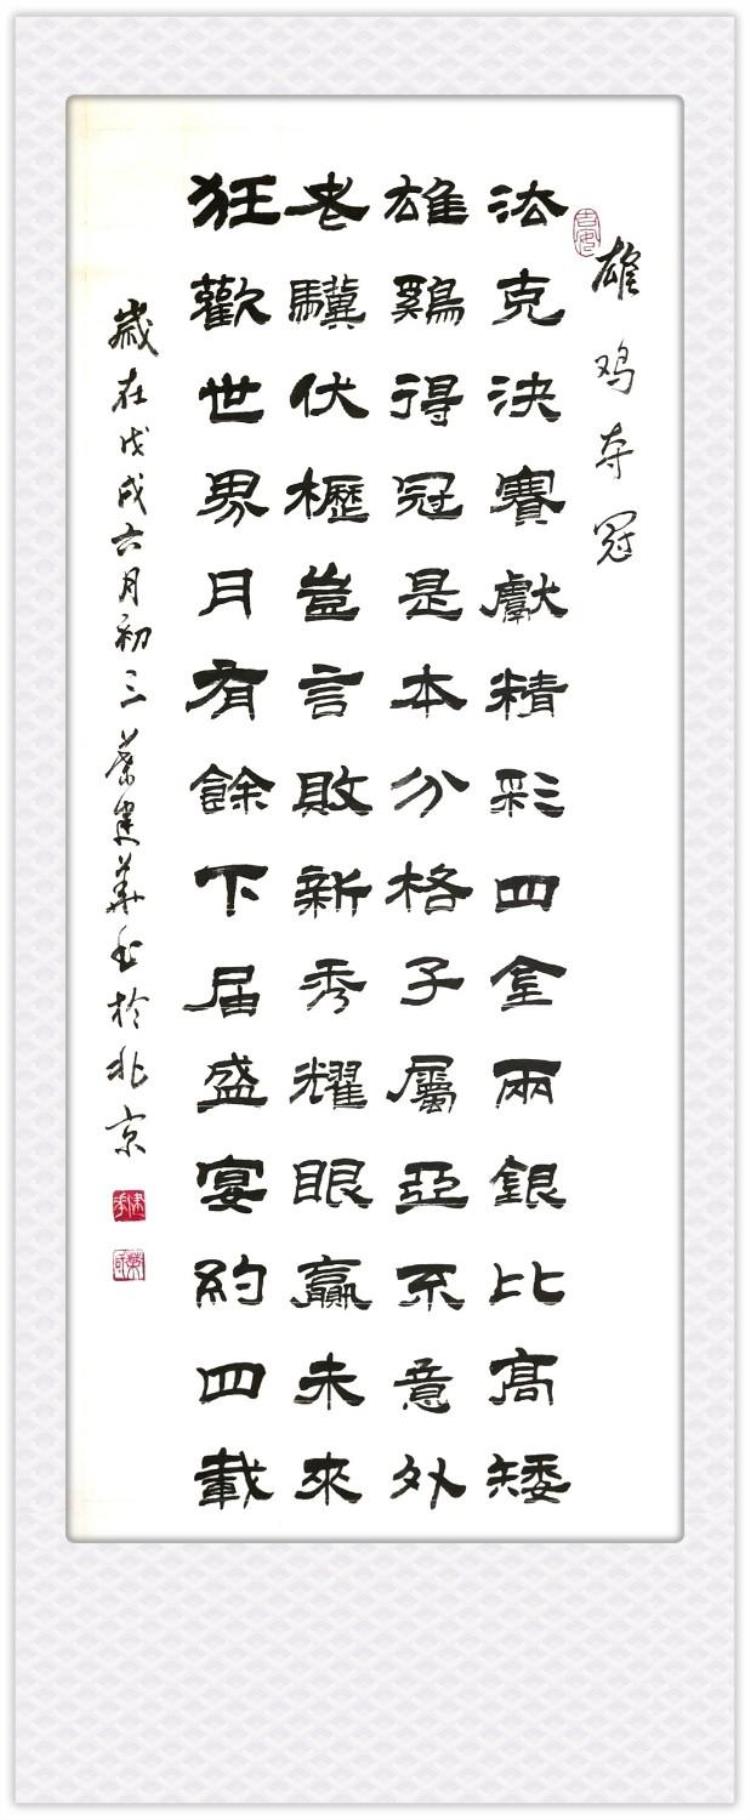 雄鸡夺冠
法克決賽獻精彩四金兩銀比高矮
雄鷄得冠是本分格子屬亞不意外
老驥伏櫪豈言敗新秀耀眼贏未來
狂歡世界月有餘下届盛宴約四載
歲在戊戌六月初三蔡建華書於北京